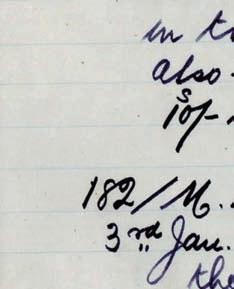 in
also
s
10/-
182/M..
3rd Jan.
the